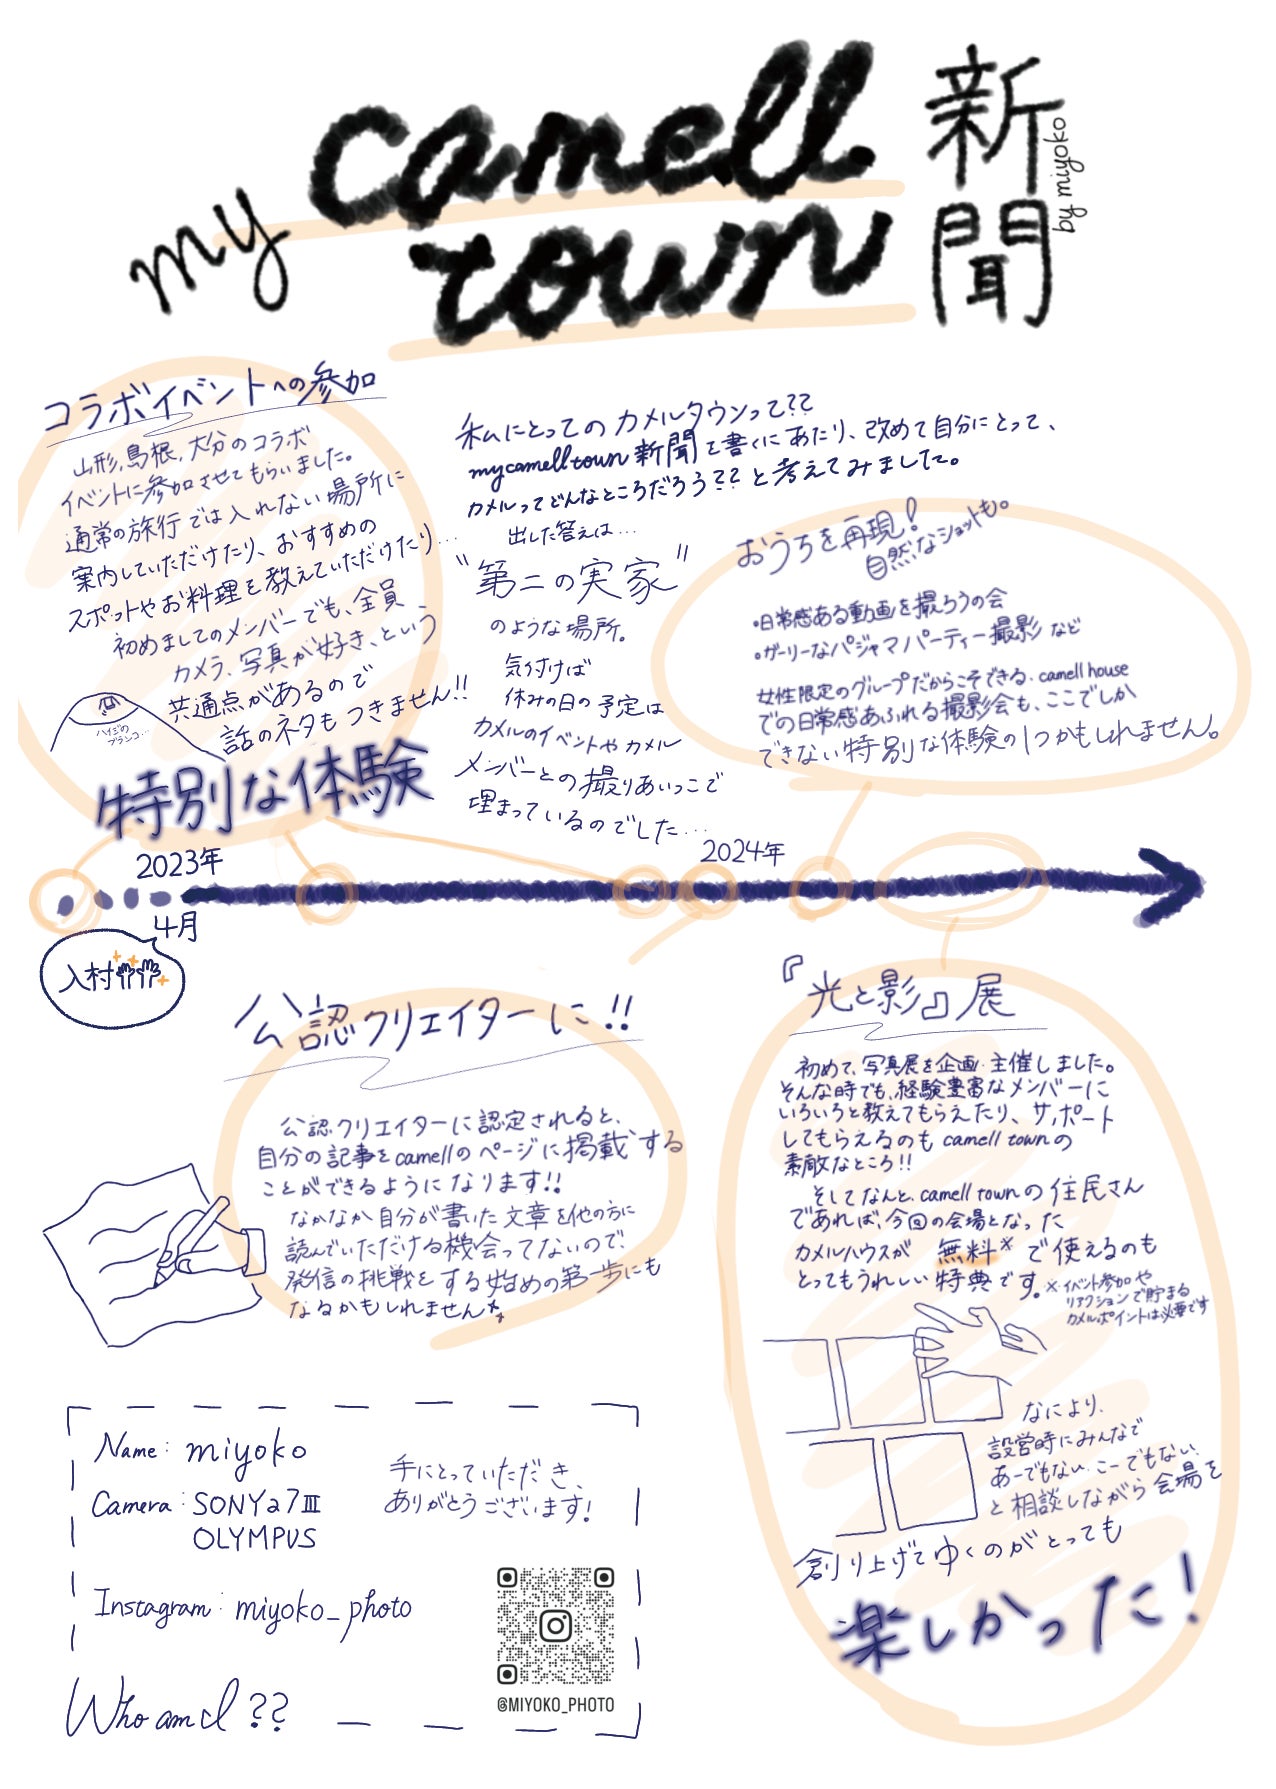 my camell town 新聞
by miyoko
コラボイベントへの参加
山形,島根,大分のコラボ
イベントに参加させてもらいました。
通常の旅行では入れない場所に
案内していただけたり、おすすめの
スポットやお料理を教えていただけたり...
初めましてのメンバーでも、全員
カメラ、写真が好き、という
共通点があるので
話のネタもつきません!!
ハイジの
ブランコ...
特別な体験
私にとってのカメルタウンって??
my camell town 新聞を書くにあたり、改めて自分にとって、
カメルってどんなところだろう??と考えてみました。
出した答えは...
"第二の実家"
のような場所。
気付けば
休みの日の予定は
カメルのイベントやカメル
メンバーとの撮りあいっこで
埋まっているのでした...
おうちを再現!
自然なショットも。
・日常感ある動画を撮ろうの会
・ガーリーなパジャマパーティー撮影など
女性限定のグループだからこそできる、camell house
での日常感あふれる撮影会も、ここでしか
できない特別な体験の1つかもしれません。
2023年
4月
2024年
入村
公認クリエイターに!!
公認クリエイターに認定されると、
自分の記事をcamellのページに掲載する
ことができるようになります!!
なかなか自分が書いた文章を他の方に
読んでいただける機会ってないので、
発信の挑戦をする始めの第一歩にも
なるかもしれません
『光と影』展
初めて、写真展を企画・主催しました。
そんな時でも、経験豊富なメンバーに
いろいろと教えてもらえたり、サポート
してもらえるのもcamell townの
素敵なところ!!
そしてなんと、camell townの住民さん
であれば、今回の会場となった
カメルハウスが 無料※で使えるのも
とってもうれしい特典です。
※イベント参加や
リアクションで貯まる
カメルポイントは必要です
なにより、
設営時にみんなで
あーでもない、こーでもない、
と相談しながら会場を
創り上げてゆくのがとっても
楽しかった!
Name: miyoko
Camera: SONYα7Ⅲ
OLYMPUS
Instagram: miyoko_photo
手にとっていただき、
ありがとうございます!
@MIYOKO_PHOTO
Who am I??